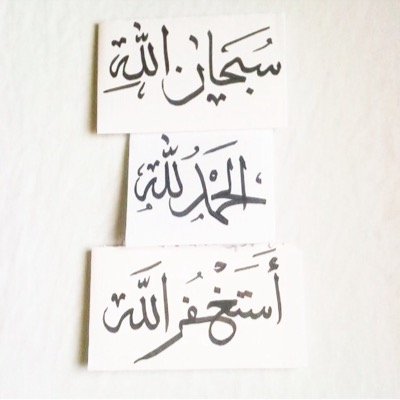 سُبْحَان اللّٰهِ
الحَمْدُ لِلّٰهِ
أَسْتَغْفِرُ اللّٰهَ